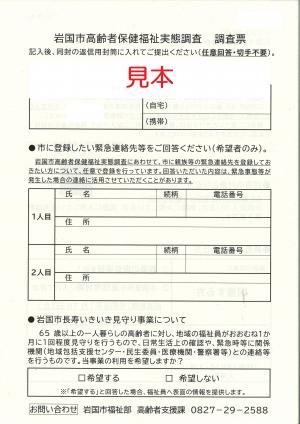 岩国市高齢者保健福祉実態調査　調査票
記入後、同封の返信用封筒に入れてご提出ください（任意回答・切手不要）。
見本
（自宅）
（携帯）
●市に登録したい緊急連絡先等をご回答ください（希望者のみ）。
岩国市高齢者保健福祉実態調査にあわせて、市に親族等の緊急連絡先を登録してお
きたい方について、任意で登録を行っています。回答いただいた内容は、緊急事態等が
発生した場合の連絡に活用させていただくことがあります。
氏　名　続柄　電話番号
1人目
住　所
氏　名　続柄　電話番号
2人目
住　所
●岩国市長寿いきいき見守り事業について
65歳以上の一人暮らしの高齢者に対し、地域の福祉員がおおむね1か
月に1回程度見守りを行うもので、日常生活上の確認や、緊急時等に関係
機関（地域包括支援センター・民生委員・医療機関・警察署等）との連絡等
を行うものです。当事業の利用を希望しますか？
□希望する　□希望しない
※「希望する」と回答した場合、福祉員へ表面の情報を提供します。
お問い合わせ　岩国市福祉部　高齢者支援課　0827-29-2588